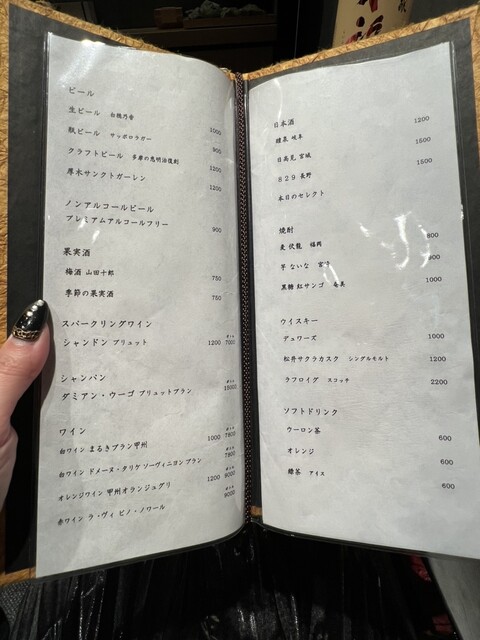 ビール
生ビール 白穂乃香 1000
瓶ビール サッポロラガー 900
クラフトビール 多摩の恵明治復刻 1200
厚木サンクトガーレン 1200
ノンアルコールビール
プレミアムアルコールフリー 900
果実酒
梅酒 山田十郎 750
季節の果実酒 750
スパークリングワイン
シャンドン ブリュット 1200 ボトル 7000
シャンパン
ダミアン・ウーゴ ブリュットブラン ボトル 15000
ワイン
白ワイン まるきブラン甲州 1000 ボトル 7800
白ワイン ドメーヌ・タリケ ソーヴィニヨン ブラン ボトル 7800
オレンジワイン 甲州オランジュグリ 1200 ボトル 9000
赤ワイン ラ・ヴィ ピノ・ノワール ボトル 9000
日本酒
醴泉 岐阜 1200
日高見 宮城 1500
829 長野 1500
本日のセレクト
焼酎
麦 伏龍 福岡 800
芋 ないな 宮崎
黒糖 紅サンゴ 奄美 1000
ウイスキー
デュワーズ 1000
松井サクラカスク シングルモルト 1200
ラフロイグ スコッチ 2200
ソフトドリンク
ウーロン茶 600
オレンジ 600
緑茶 アイス 600